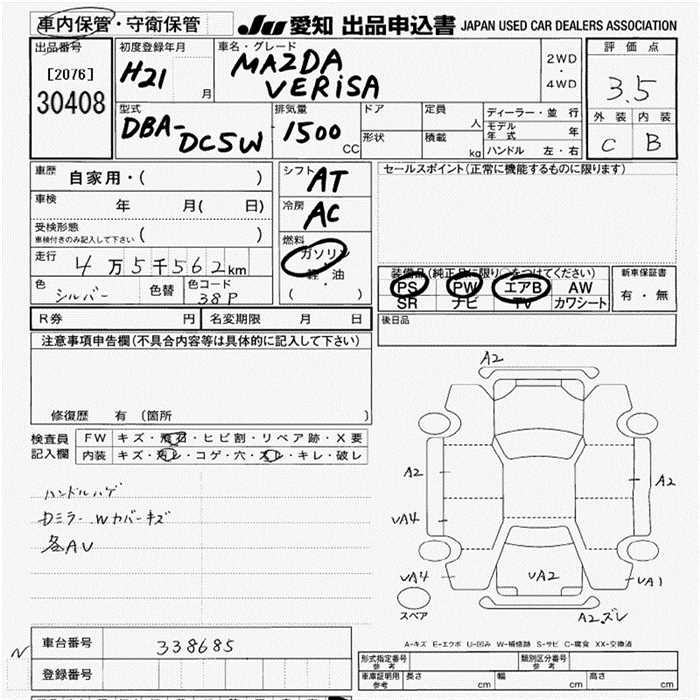 車内保管・守衛保管 JU 愛知 出品申込書 JAPAN USED CAR DEALERS ASSOCIATION
出品番号 初度登録年月 車名・グレード 評価点
[2076] H21 月 MAZDA VERISA 2WD ・ 4WD 3.5
30408
外装 内装
C B
型式 排気量 ドア 定員 人 ディーラー・並行
DBA-DC5W 1500 CC 形状 積載 kg モデル年式 年
ハンドル 左・右
車歴 自家用・( ) シフト AT セールスポイント(正常に機能するものに限ります)
車検 年 月( 日) 冷房 AC
受検形態 車検付きのみ記入して下さい ( )
燃料 ガソリン ・ 軽油 ( )
走行 4万5千562km
色 シルバー 色替 色コード 38P
装備品(純正品に限り○をつけてください) 新車保証書
PS PW エアB AW 有・無
SR ナビ TV カワシート
R券 円 名変期限 月 日 後日品
注意事項申告欄(不具合内容等は具体的に記入して下さい)
修復歴 有 (箇所 )
検査員記入欄 FW キズ・飛石・ヒビ割・リペア跡・X要
内装 キズ・汚レ・コゲ・穴・スレ・キレ・破レ
ハンドルハゲ
Dミラー Wカバーキズ
各AU
A2
A2
A2
UA4
UA4
UA2
UA1
スペア
A2ズレ
A-キズ E-エクボ U-凹み W-補修跡 S-サビ C-腐食 XX-交換済
N
車台番号 338685
登録番号
形式指定番号 参考 類別区分番号 参考
車庫証明用 参考 長さ cm 幅 cm 高さ cm